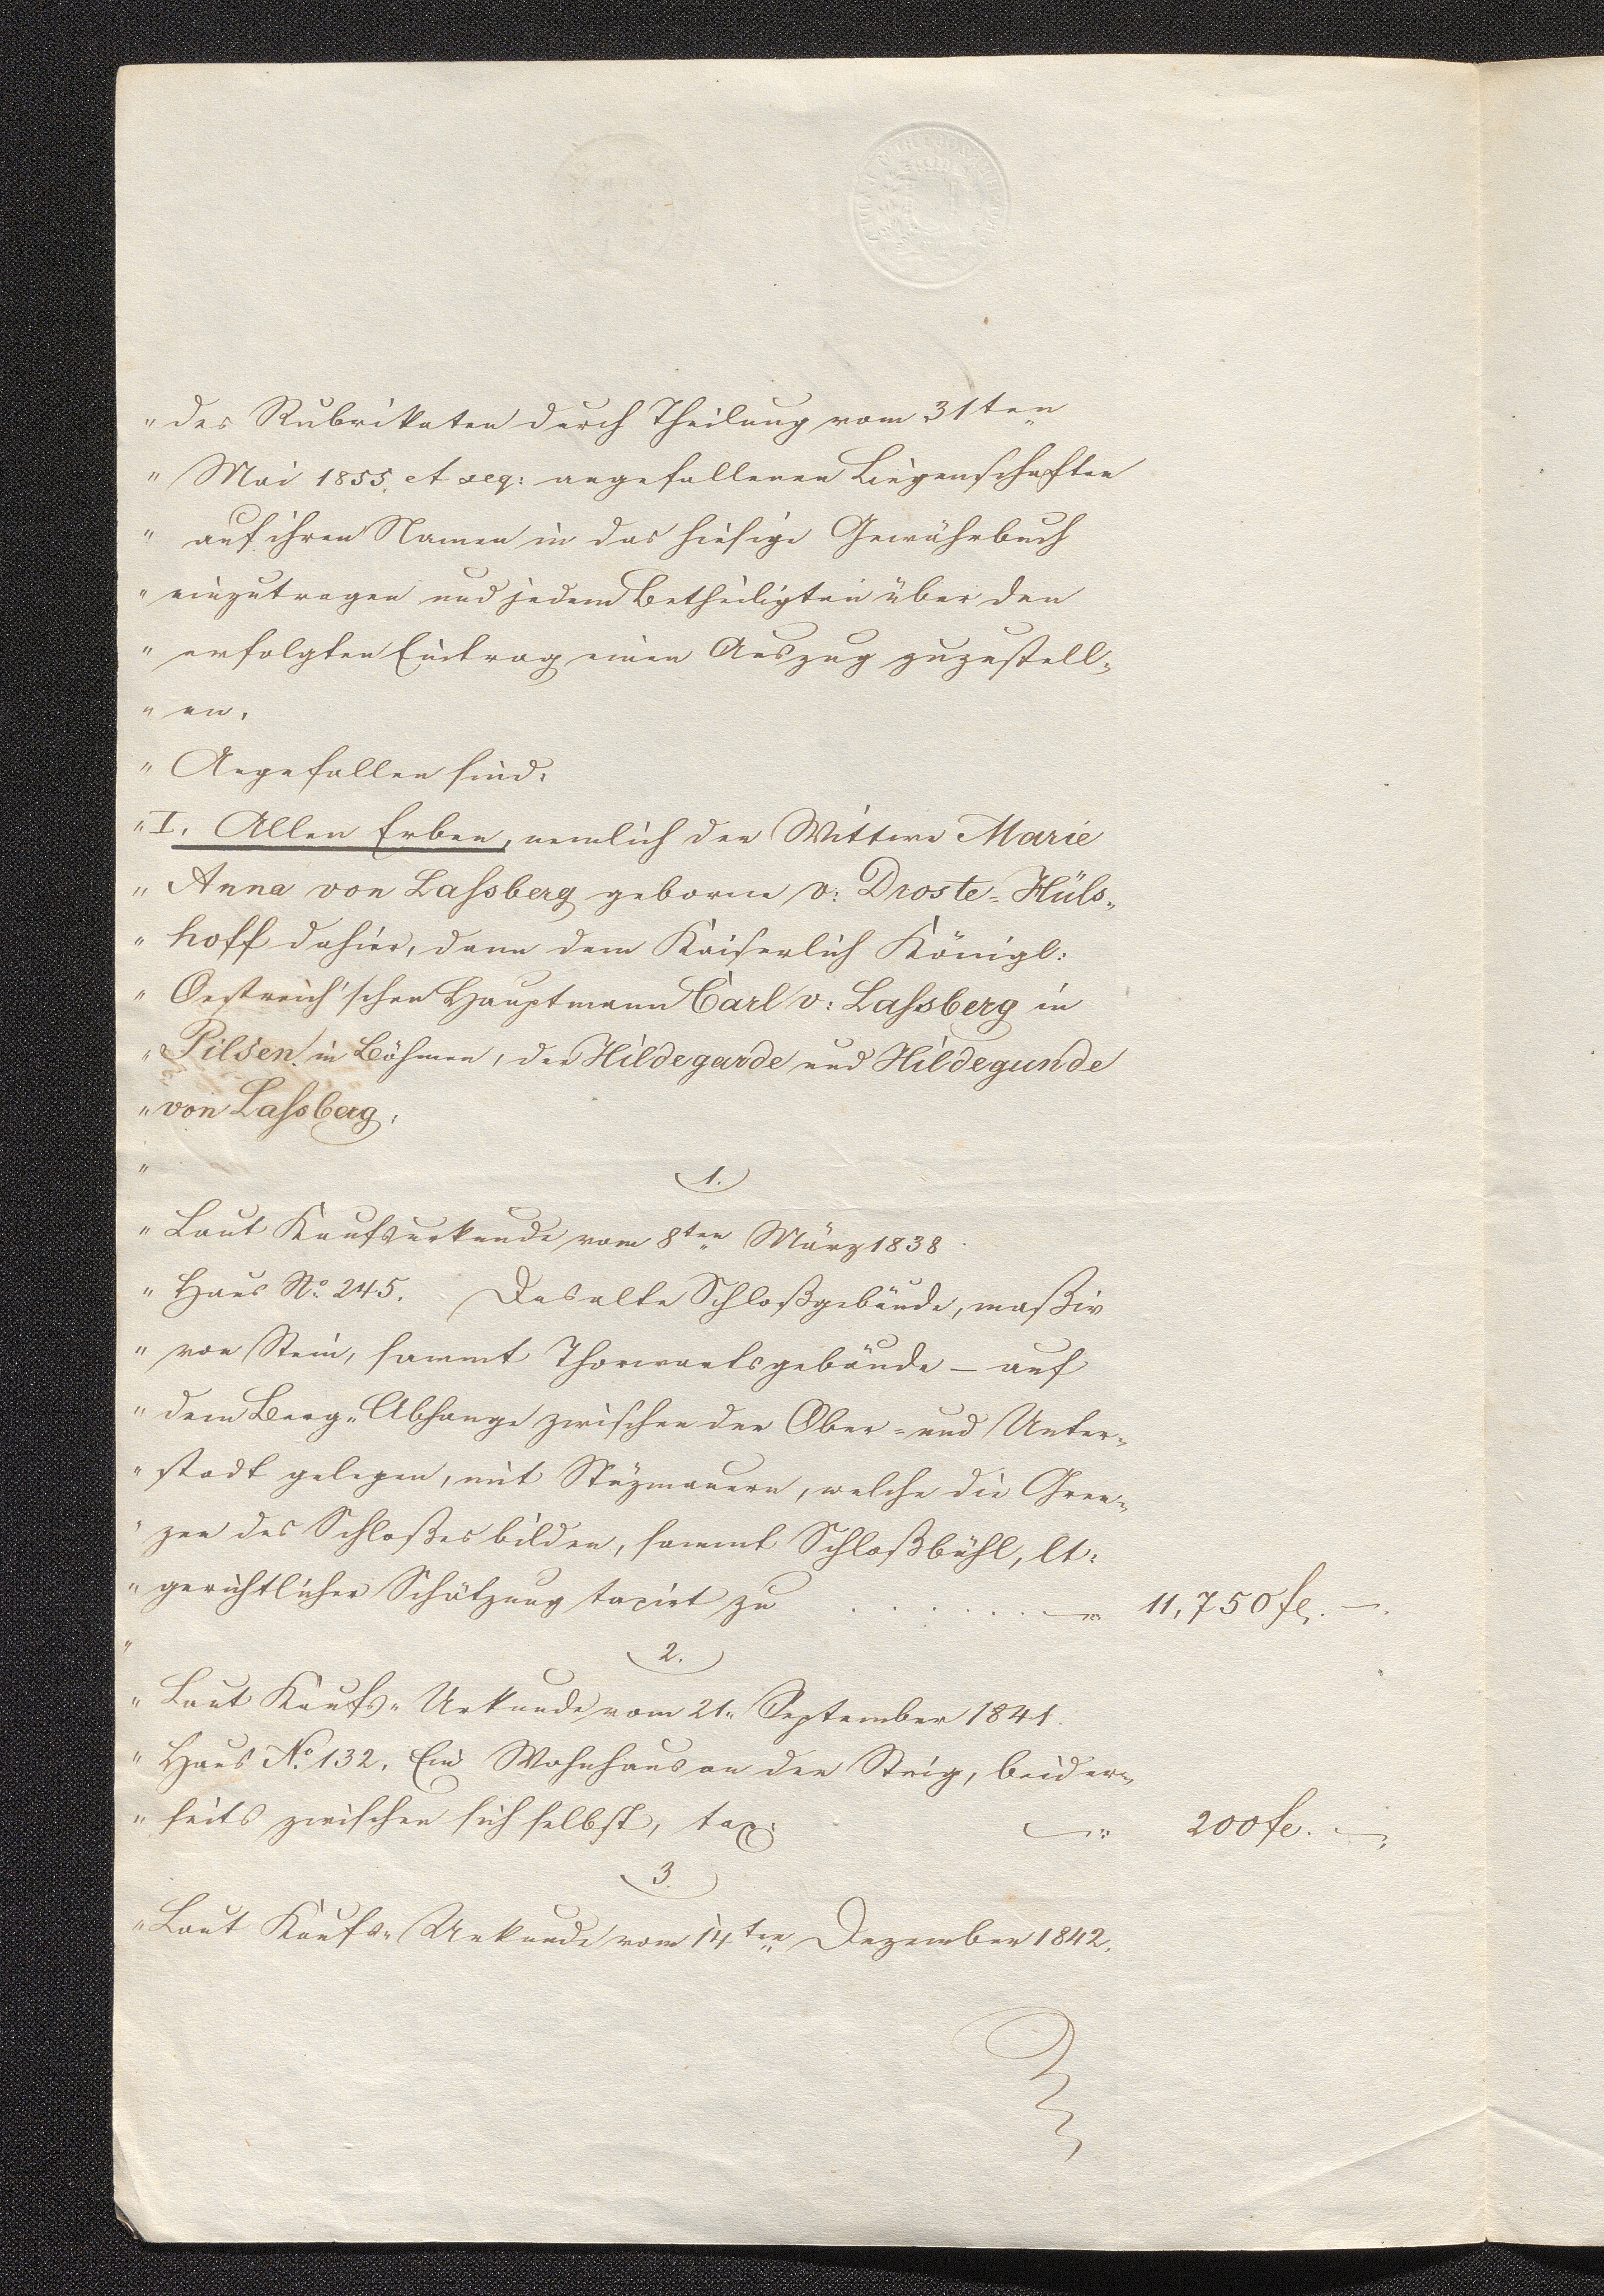 „ des Rubrikaten durch Theilung vom 31ten
„ Mai 1855. et seq: angefallenen Liegenschaften
„ auf ihren Namen in das hiesige Gewährbuch
„ einzutragen und jedem Betheiligten über den
„ erfolgten Eintrag einen Auszug zuzustell„
„ en.
„ Angefallen sind:
„ I. Allen Erben, nemlich der Wittwe Marie
„ Anna von Laſsberg geborne v: Droste-Hüls„
„ hoff dahier, dann dem Kaiserlich Königl:
„ Oestreich'schen Hauptmann Carl v: Laſsberg in
„ Pilsen in Böhmen, der Hildegarde und Hildegunde
„ von Laſsberg.
„ 1.
„ Laut Kaufsurkunde vom 8ten März 1838.
„ Haus No. 245. Das alte Schloßgebäude, maßiv
„ von Stein, sammt Thorwartsgebäude – auf
„ dem Berg„Abhange zwischen der Ober- und Unter„
„ stadt gelegen, mit Stüzmauern, welche die Gren„
„ zen des Schloßes bilden, sammt Schloßbühl, lt:
„ gerichtlicher Schätzung taxirt zu . . . . . . . — 11,750 fl. —.
„ 2.
„ Laut Kaufs„Urkunde vom 21„ September 1841.
„ Haus No. 132. Ein Wohnhaus an der Steig, beider„
„ seits zwischen sich selbst, tax: — 200 fl. —
3.
„ Laut Kaufs„Urkunde vom 14ten Dezember 1842.